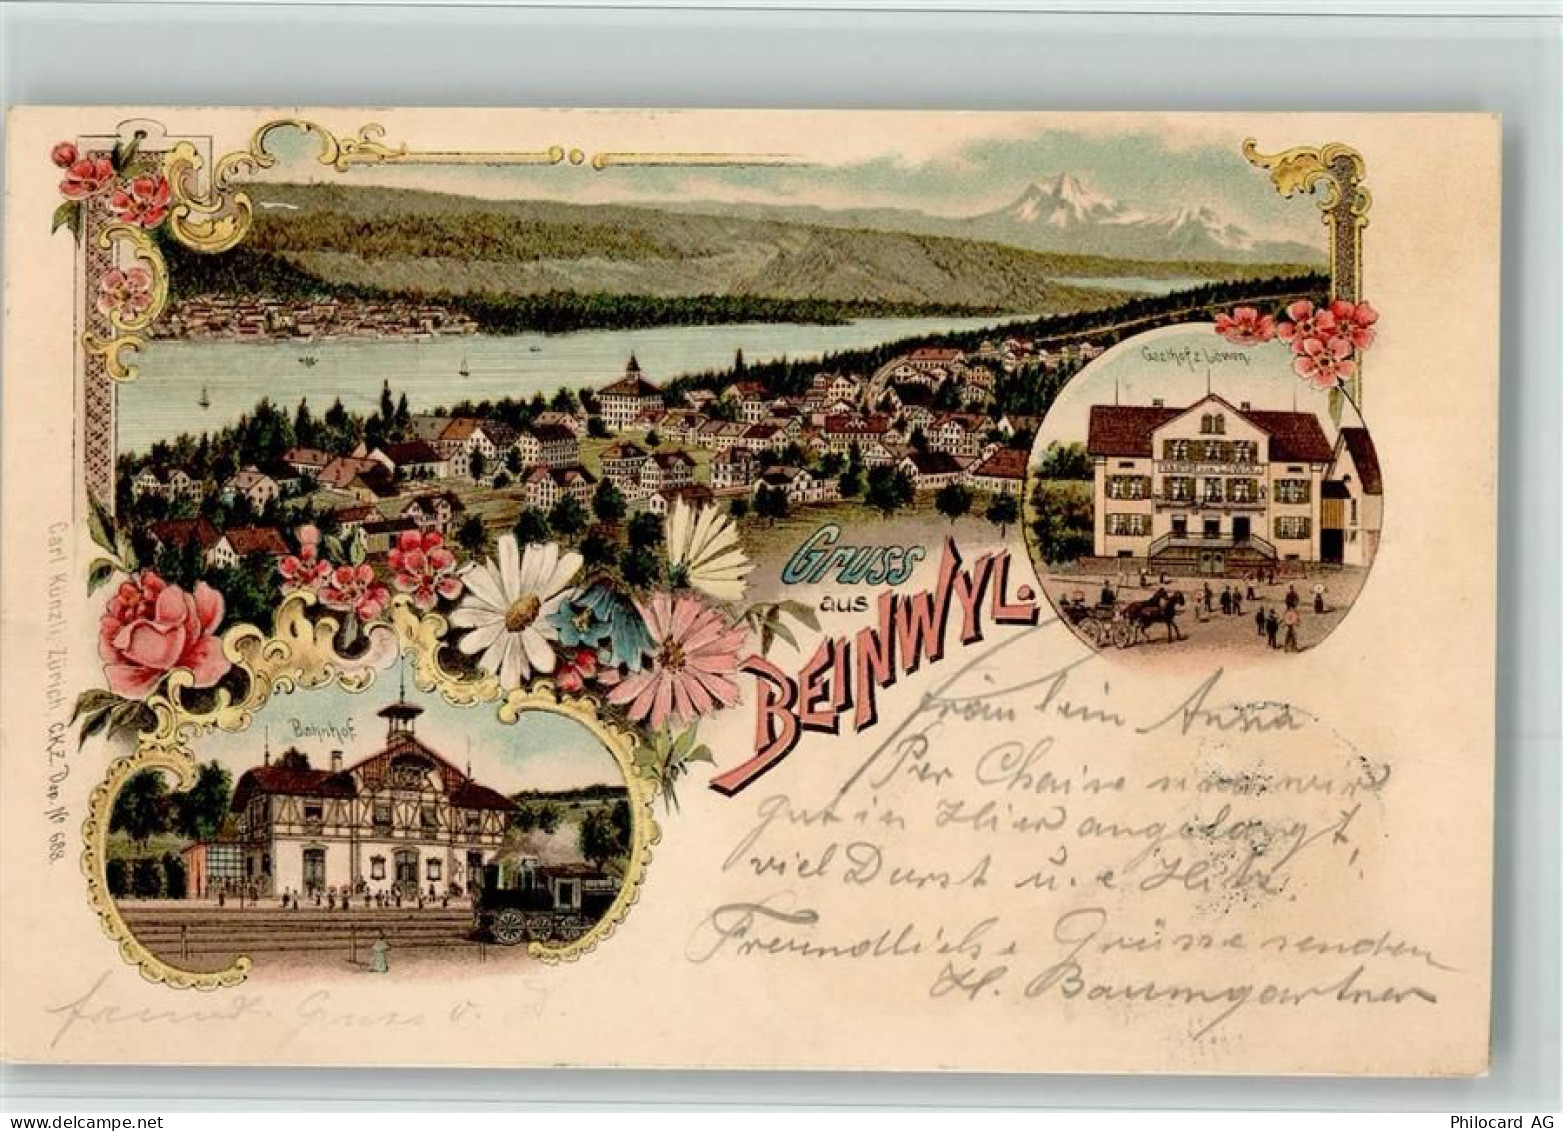 Gasthof z Löwen.
Gruss
aus
BEINWYL.
Bahnhof.
Carl Künzli, Zürich C.K.Z. Dep. № 688.
Fräulein Anna
Per Chaise sind wir
gut in Hier angelangt,
viel Durst u. e Hitz.
Freundliche Grüsse senden
H. Baumgartner
freundl. Gruss v.
Philocard AG